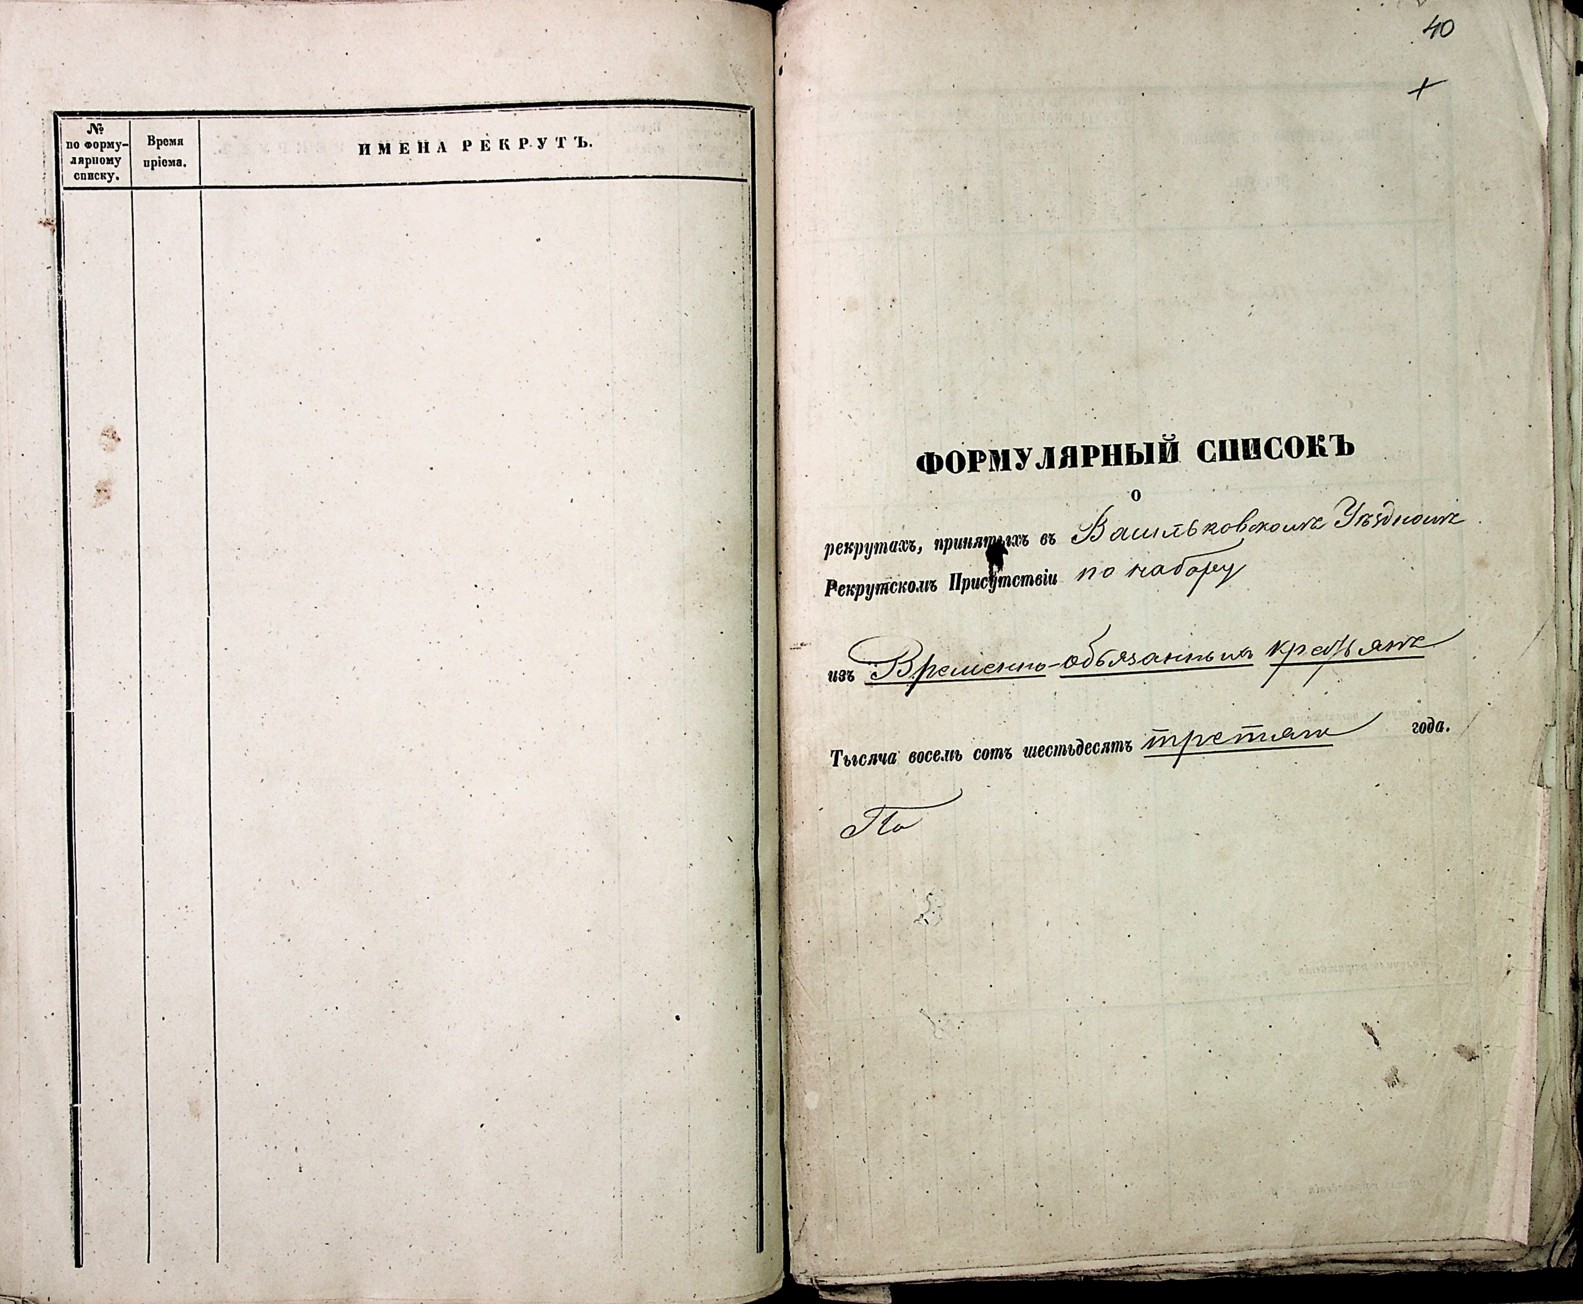 №
по форму-
лярному
списку.
Время
пріема.
ИМЕНА РЕКРУТЪ.
40
ФОРМУЛЯРНЫЙ СПИСОКЪ
о
рекрутахъ, принятыхъ въ Васильковскомъ Уѣздномъ
Рекрутскомъ Присутствіи по набору
изъ Временно-обязанныхъ крестьянъ
Тысяча восемь сотъ шестьдесятъ третьяго года.
По